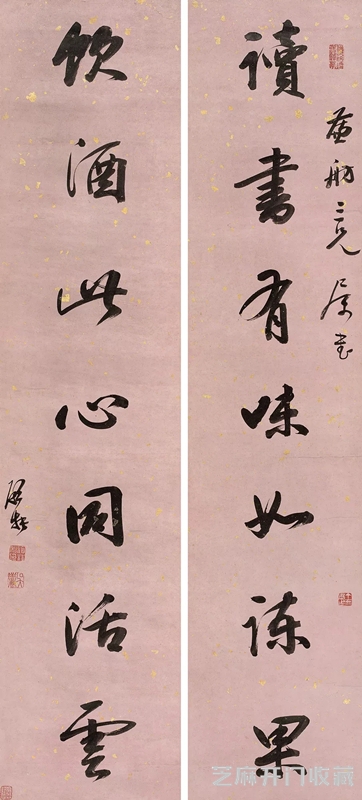 讀書有味如諫果
舫二兄屬書
飲酒此心同活雲
芝麻开门收藏